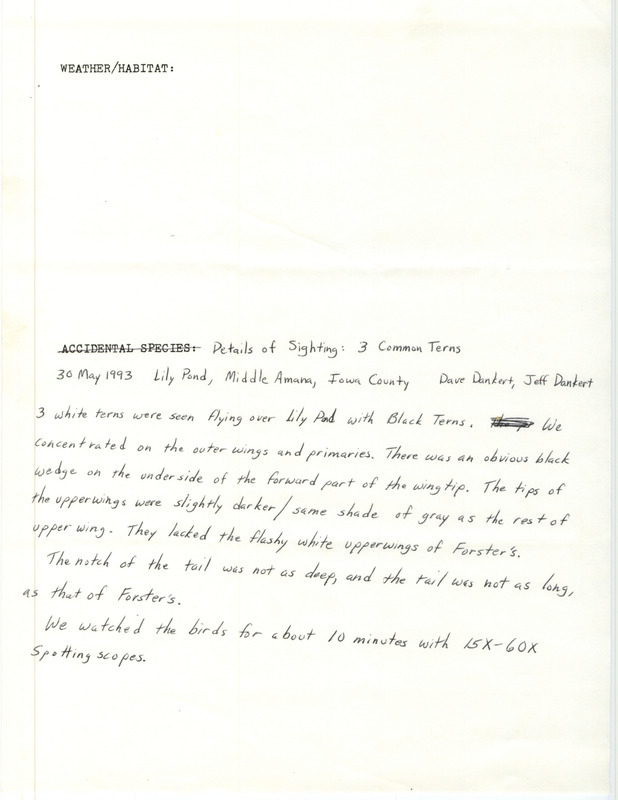 WEATHER/HABITAT:
ACCIDENTAL SPECIES: Details of Sighting: 3 Common Terns
30 May 1993 Lily Pond, Middle Amana, Iowa County Dave Dankert, Jeff Dankert
3 white terns were seen flying over Lily Pond with Black Terns. We
concentrated on the outer wings and primaries. There was an obvious black
wedge on the underside of the forward part of the wingtip. The tips of
the upperwings were slightly darker/same shade of gray as the rest of
upper wing. They lacked the flashy white upperwings of Forster's.
The notch of the tail was not as deep, and the tail was not as long,
as that of Forster's.
We watched the birds for about 10 minutes with 15X-60X
Spotting scopes.